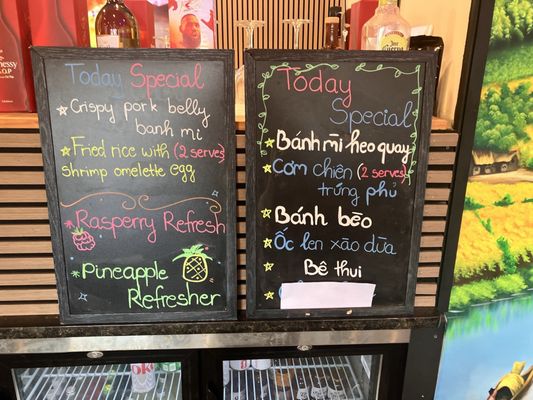 Today Special
Crispy pork belly
banh mi
Fried rice with (2 serves)
shrimp omelette egg
Rasperry Refresh
Pineapple
Refresher
Today
Special
Bánh mì heo quay
Cơm chiên (2 serves)
trứng phủ
Bánh bèo
Ốc len xào dừa
Bê thui